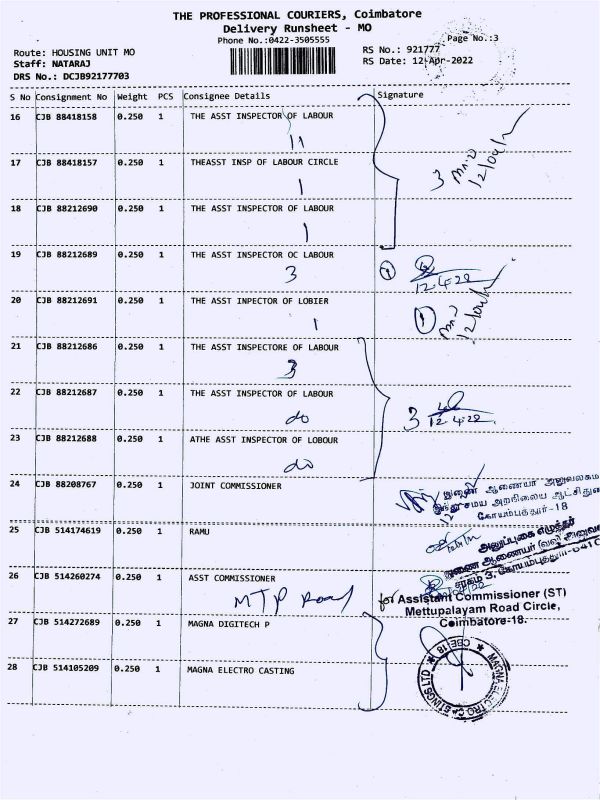 THE PROFESSIONAL COURIERS, Coimbatore
Delivery Runsheet - MO
Phone No.:0422-3505555
Page No.:3
Route: HOUSING UNIT MO
RS No.: 921777
Staff: NATARAJ
RS Date: 12-Apr-2022
DRS No.: DCJB92177703
S No Consignment No Weight PCS Consignee Details Signature
16 CJB 88418158 0.250 1 THE ASST INSPECTOR OF LABOUR
11
17 CJB 88418157 0.250 1 THEASST INSP OF LABOUR CIRCLE
1
3
18 CJB 88212690 0.250 1 THE ASST INSPECTOR OF LABOUR
1
19 CJB 88212689 0.250 1 THE ASST INSPECTOR OC LABOUR
3
12.4.22
20 CJB 88212691 0.250 1 THE ASST INPECTOR OF LOBIER
1
1
21 CJB 88212686 0.250 1 THE ASST INSPECTORE OF LABOUR
3
22 CJB 88212687 0.250 1 THE ASST INSPECTOR OF LABOUR
do
3
12.4.22
23 CJB 88212688 0.250 1 ATHE ASST INSPECTOR OF LOBOUR
do
24 CJB 88208767 0.250 1 JOINT COMMISSIONER
இணை ஆணையர் அலுவலகம
இந்து சமய அறநிலைய ஆட்சிதுறை
கோயம்பத்தூர்-18
25 CJB 514174619 0.250 1 RAMU
அலுப்புகை எழுத்தர்
துணை ஆணையர் (வவ) அலுவல
சரகம் 3, கோயம்பத்தூர்-641C
26 CJB 514260274 0.250 1 ASST COMMISSIONER
MTP Road
for Assistant Commissioner (ST)
Mettupalayam Road Circle,
Coimbatore-18.
27 CJB 514272689 0.250 1 MAGNA DIGITECH P
28 CJB 514105209 0.250 1 MAGNA ELECTRO CASTING
MAGNA ELECTRO CASTINGS LTD ★ CBE 18 ★